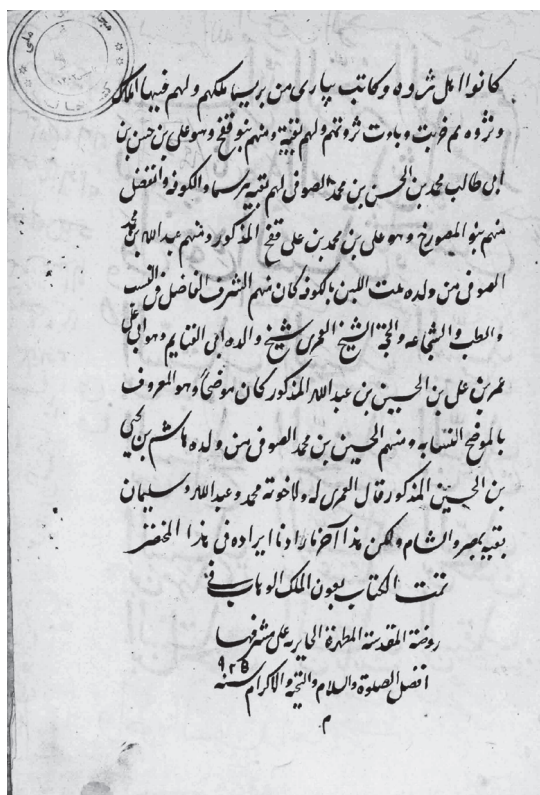 كانوا اهل ثروه وكاتب بباری من برسما ملكهم ولهم فيها املاك
وثروه ثم خربت وبادت ثروتهم ولهم بقية ومنهم بنو قفح وهو علی بن حسن بن
ابی طالب محمد بن الحسن بن محمد الصوفی لهم بقيه ببرسما والكوفه وانفصل
منهم بنو المصورح وهو علی بن محمد بن علی قفح المذكور ومنهم عبد الله بن محمد
الصوفی من ولده بيت اللبن بالكوفه كان منهم الشريف الفاضل فی النسب
والطب والشجاعه والحجة الشيخ العمری شيخ والده ابی الغنايم وهو ابی علی
عمر بن علی بن الحسين بن عبد الله المذكور كان موضحاً وهو المعروف
بالموضح النسابه ومنهم الحسين بن محمد الصوفی من ولده هاشم بن يحيی
بن الحسين المذكور قال العمری له ولاخوته محمد وعبد الله وسليمان
بقيه بمصر والشام وليكن هذا آخر ما اردنا ايراده فی هذا المختصر
تمت الكتاب بعون الملك الوهاب فی
روضة المقدسة المطهرة الحايريه علی مشرفها
افضل الصلوة والسلام والتحيه والاكرام سنه ۹۲۵
م